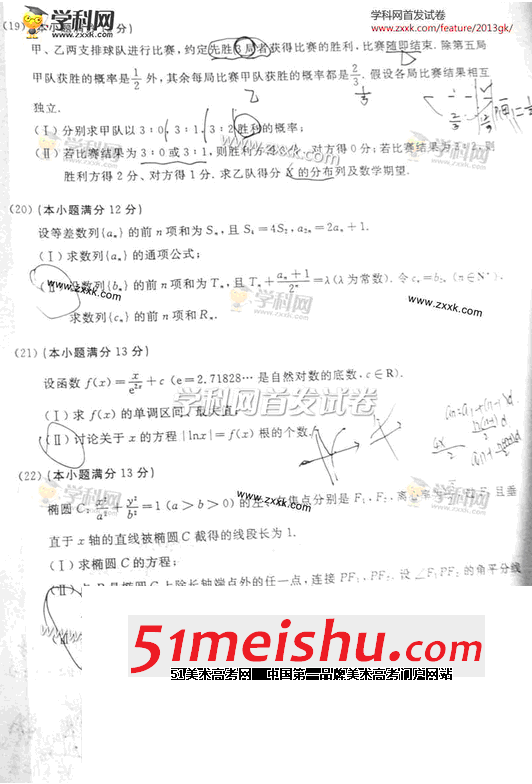 学科网 学科网首发试卷
www.zxxk.com www.zxxk.com/feature/2013gk/
(19)
甲、乙两支排球队进行比赛，约定先胜3局者获得比赛的胜利，比赛随即结束. 除第五局
甲队获胜的概率是1/2外，其余每局比赛甲队获胜的概率都是2/3. 假设各局比赛结果相互
独立.
(Ⅰ) 分别求甲队以 3:0, 3:1, 3:2 胜利的概率；
(Ⅱ) 若比赛结果为 3:0 或 3:1, 则胜利方 对方得 0 分；若比赛结果为 3:2, 则
胜利方得 2 分、对方得 1 分. 求乙队得分 X 的分布列及数学期望.
学科网
www.zxxk.com
(20) (本小题满分 12 分)
设等差数列{aₙ} 的前 n 项和为 Sₙ, 且 S₄=4S₂, a₂ₙ=2aₙ+1.
(Ⅰ) 求数列{aₙ} 的通项公式；
数列{bₙ} 的前 n 项和为 Tₙ, 且 Tₙ+(aₙ+1)/2ⁿ=λ(λ 为常数). 令 cₙ=b₂ₙ (n∈N*).
www.zxxk.com 学科网 www.zxxk.com
求数列{cₙ} 的前 n 项和 Rₙ.
(21) (本小题满分 13 分)
设函数 f(x)=x/e²ˣ+c (e=2.71828… 是自然对数的底数, c∈R).
学科网首发试卷
(Ⅰ) 求 f(x) 的单调区间、最大值；
(Ⅱ) 讨论关于 x 的方程 |lnx|=f(x) 根的个数.
(22) (本小题满分 13 分)
学科网 www.zxxk.com 学科网
椭圆 C: x²/a²+y²/b²=1 (a>b>0) 的左 焦点分别是 F₁、F₂, 离 且垂
直于 x 轴的直线被椭圆 C 截得的线段长为 1.
(Ⅰ) 求椭圆 C 的方程；
(Ⅱ) 点 P 是椭圆 C 上除长轴端点外的任一点, 连接 PF₁、PF₂. 设 ∠F₁PF₂ 的角平分线
51meishu.com
51美术高考网 中国第一品牌美术高考门户网站